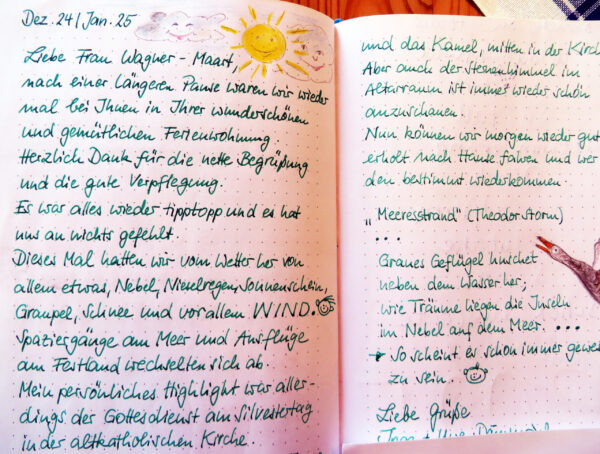 Dez. 24/Jan. 25
Liebe Frau Wagner-Maart,
nach einer längeren Pause waren wir wieder
mal bei Ihnen in Ihrer wunderschönen
und gemütlichen Ferienwohnung.
Herzlich Dank für die nette Begrüßung
und die gute Verpflegung.
Es war alles wieder tipptopp und es hat
uns an nichts gefehlt.
Dieses Mal hatten wir vom Wetter her von
allem etwas, Nebel, Nieselregen, Sonnenschein,
Graupel, Schnee und vor allem WIND.
Spaziergänge am Meer und Ausflüge
am Festland wechselten sich ab.
Mein persönliches Highlight war aller-
dings der Gottesdienst am Silvestertag
in der altkatholischen Kirche.
und das Kamel, mitten in der Kirch
Aber auch der Sternenhimmel im
Altarraum ist immer wieder schön
anzuschauen.
Nun können wir morgen wieder gut
erholt nach Hause fahren und wer
den bestimmt wiederkommen.
„Meeresstrand" (Theodor Storm)
...
Graues Geflügel huschet
neben dem Wasser her;
wie Träume liegen die Inseln
im Nebel auf dem Meer. ...
So scheint es schon immer gewes
zu sein.
Liebe Grüße